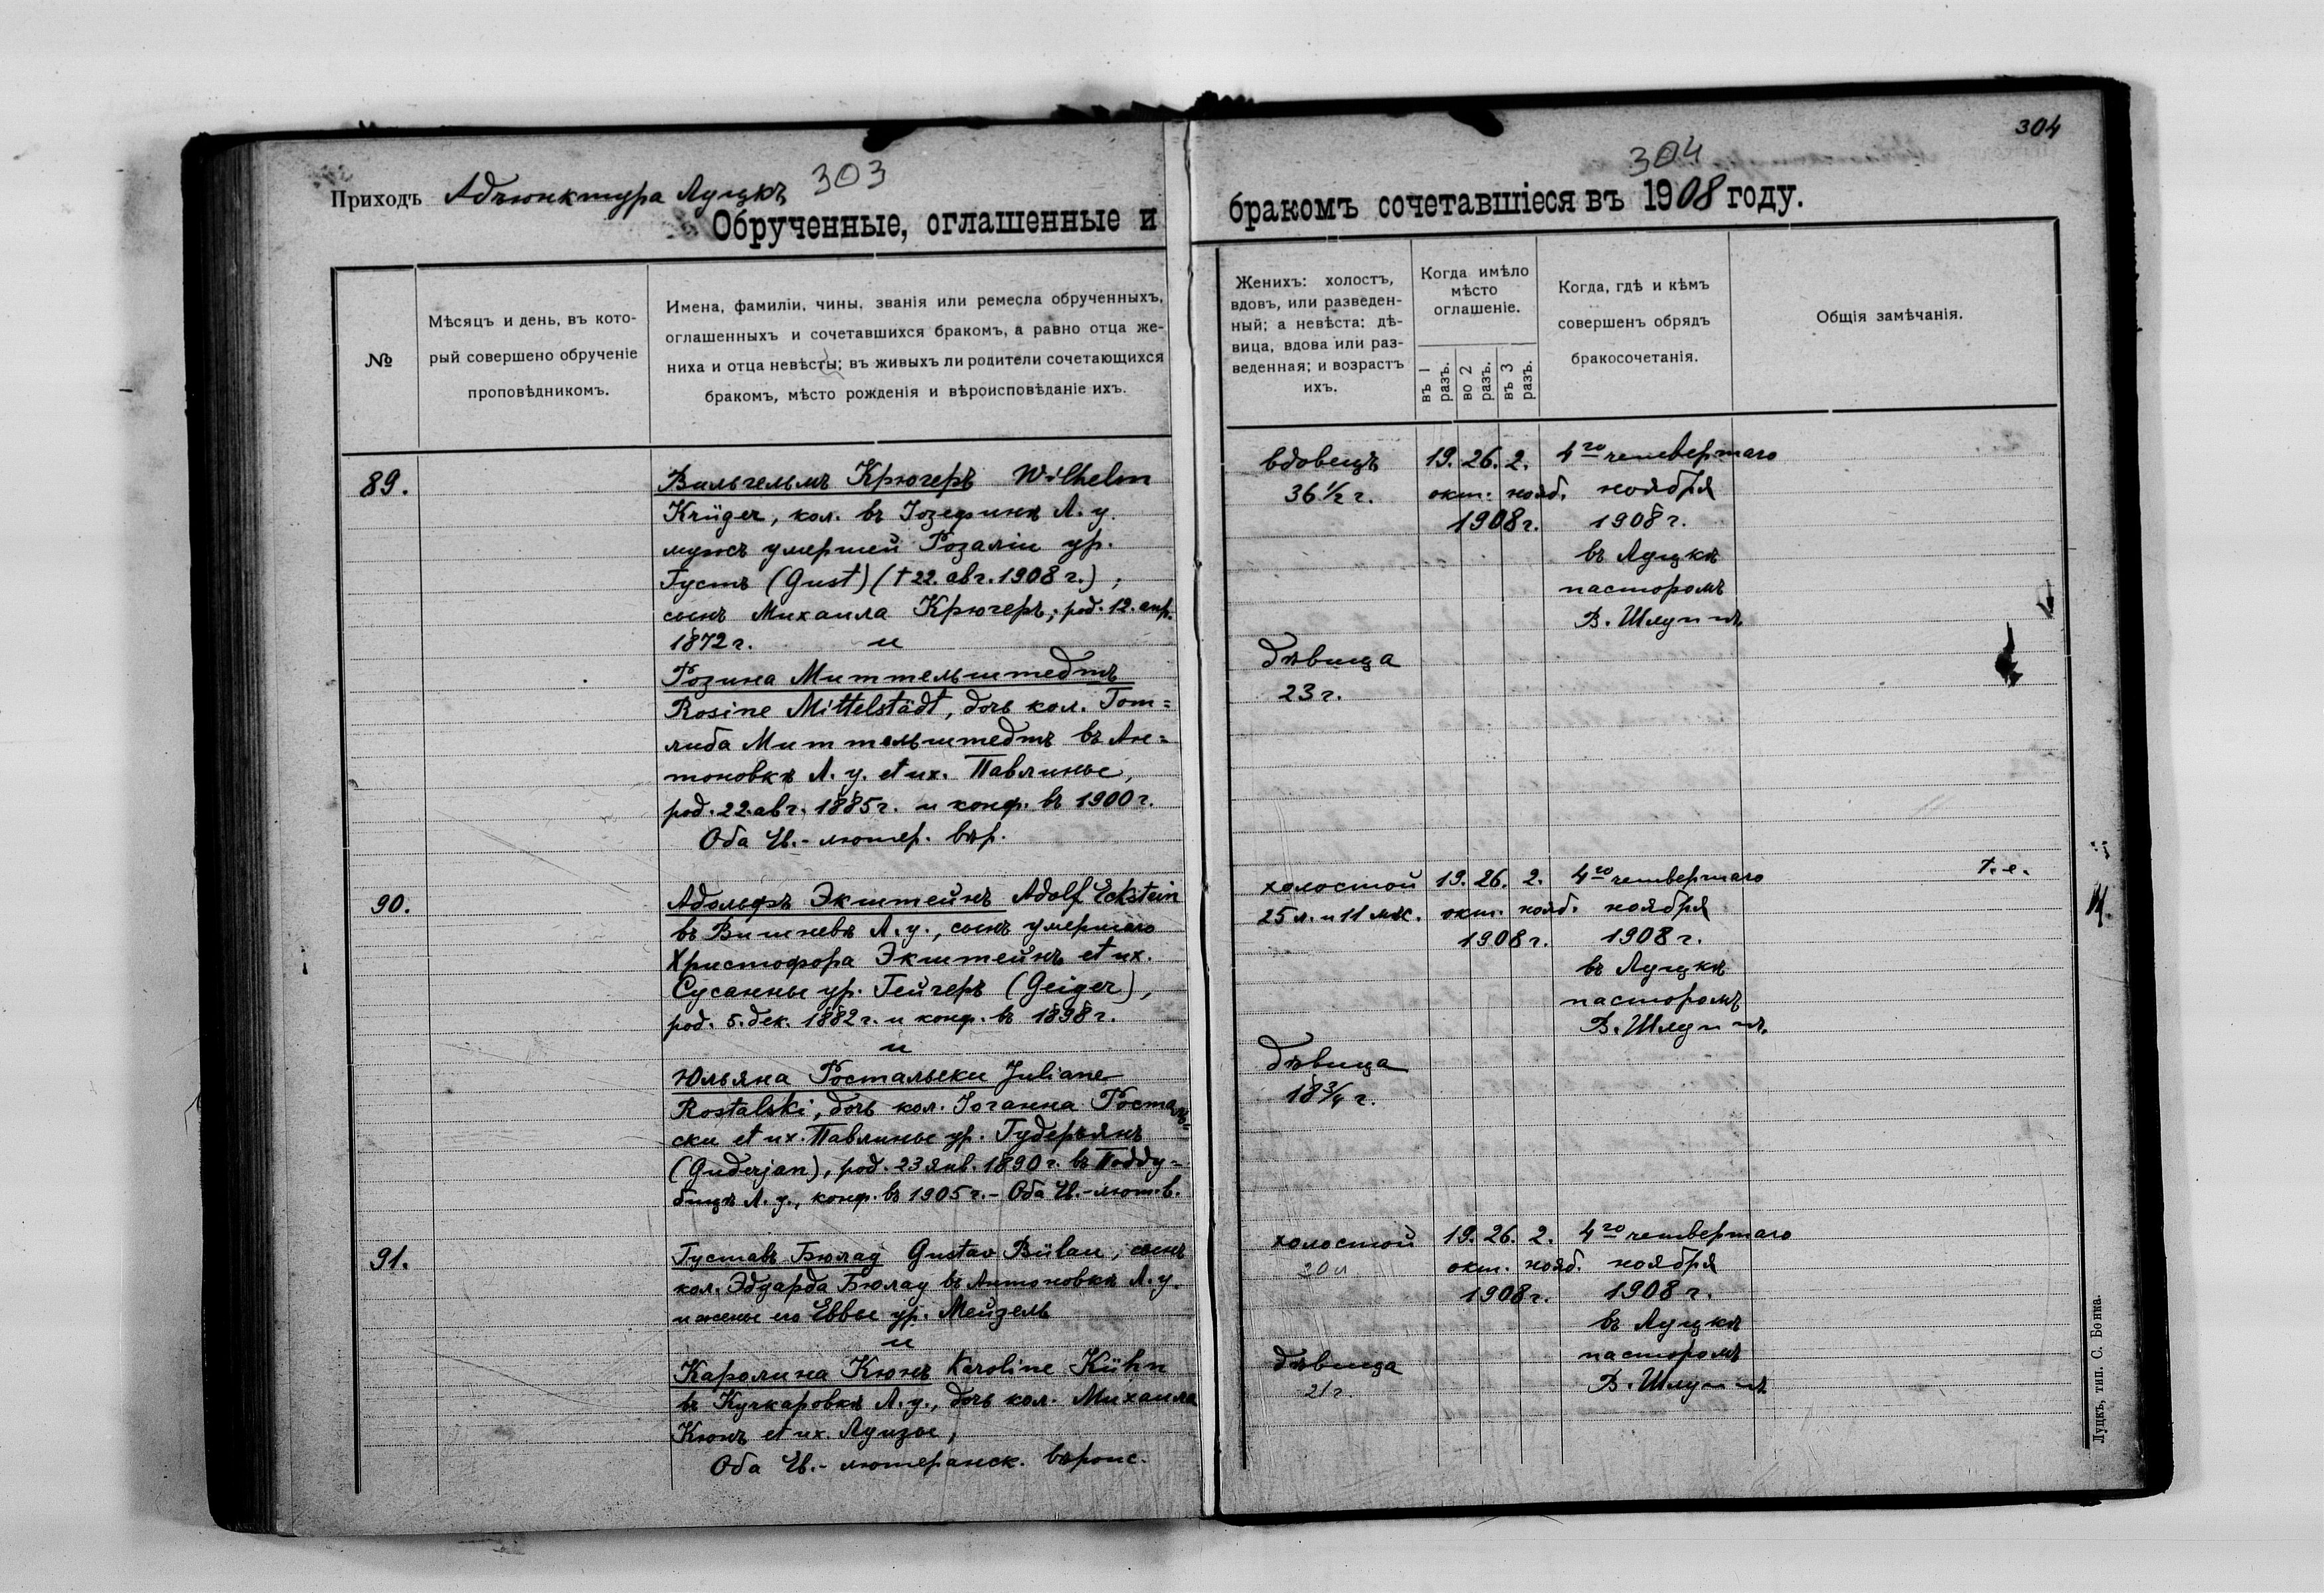 Приходъ Адъюнктура Луцкъ 303
Обрученные, оглашенные и
№
Мѣсяцъ и день, въ кото-
рый совершено обрученіе
проповѣдникомъ.
Имена, фамиліи, чины, званія или ремесла обрученныхъ,
оглашенныхъ и сочетавшихся бракомъ, а равно отца же-
ниха и отца невѣсты; въ живыхъ ли родители сочетающихся
бракомъ, мѣсто рожденія и вѣроисповѣданіе ихъ.
89.
Вильгельмъ Крюгеръ Wilhelm
Krüger, кол. въ Іозефинѣ Л. у.
мужъ умершей Розаліи ур.
Густъ (Gust) († 22. авг. 1908 г.);
сынъ Михаила Крюгеръ; род. 12. апр.
1872 г. и
Розина Миттельштедтъ
Rosine Mittelstädt, дочь кол. Гот=
либа Миттельштедтъ въ Ан=
тоновкѣ Л. у. et ux. Павлины,
род. 22. авг. 1885 г. и конф. въ 1900 г.
Оба Ев.- лютер. вѣр.
90.
Адольфъ Экштейнъ Adolf Eckstein
въ Вишневѣ Л. у., сынъ умершаго
Христофора Экштейнъ et ux.
Сусанны ур. Гейгеръ (Geiger),
род. 5. дек. 1882 г. и конф. въ 1898 г.
и
Юльяна Ростальски Juliane
Rostalski, дочь кол. ІоганнаРосталь=
ски et ux. Павлины ур. Гудерьянъ
(Guderjan), род. 23 янв. 1890 г. въ Подду-
бицѣ Л. у., конф. въ 1905 г. - Оба Ев.-лют. в.
91.
Густавъ Бюлау Gustav Bülau, сынъ
кол. Эдуарда Бюлау въ Антоновкѣ Л. у.
и жены его Еввы ур. Мейзель
и
Каролина Кюнъ Karoline Kühn
въ Кучкаровкѣ Л. у., дочь кол. Михаила
Кюнъ et ux. Луизы,
Оба Ев.- лютеранск. вѣроис.
304
304
бракомъ сочетавшіеся въ 1908 году.
Женихъ: холостъ,
вдовъ, или разведен-
ный; а невѣста: дѣ-
вица, вдова или раз-
веденная; и возрастъ
ихъ.
Когда имѣло
мѣсто
оглашеніе.
въ 1 разъ.
во 2 разъ.
въ 3 разъ.
Когда, гдѣ и кѣмъ
совершенъ обрядъ
бракосочетанія.
Общія замѣчанія.
вдовецъ 19. 26. 2. 4го четвертаго
36½ г. окт. нояб. ноября
1908 г. 1908 г.
въ Луцкѣ
пасторомъ
В. Шлуппъ
дѣвица
23 г.
холостой 19. 26. 2. 4го четвертаго
25 л. и 11 мѣс. окт. нояб. ноября
1908 г. 1908 г.
въ Луцкѣ
пасторомъ
В. Шлуппъ.
дѣвица
18¾ г.
холостой 19. 26. 2. 4го четвертаго
20 л окт. нояб. ноября
1908 г. 1908 г.
въ Луцкѣ
пасторомъ
В. Шлуппъ
дѣвица
21 г.
Луцкъ, тип. С. Бонка.